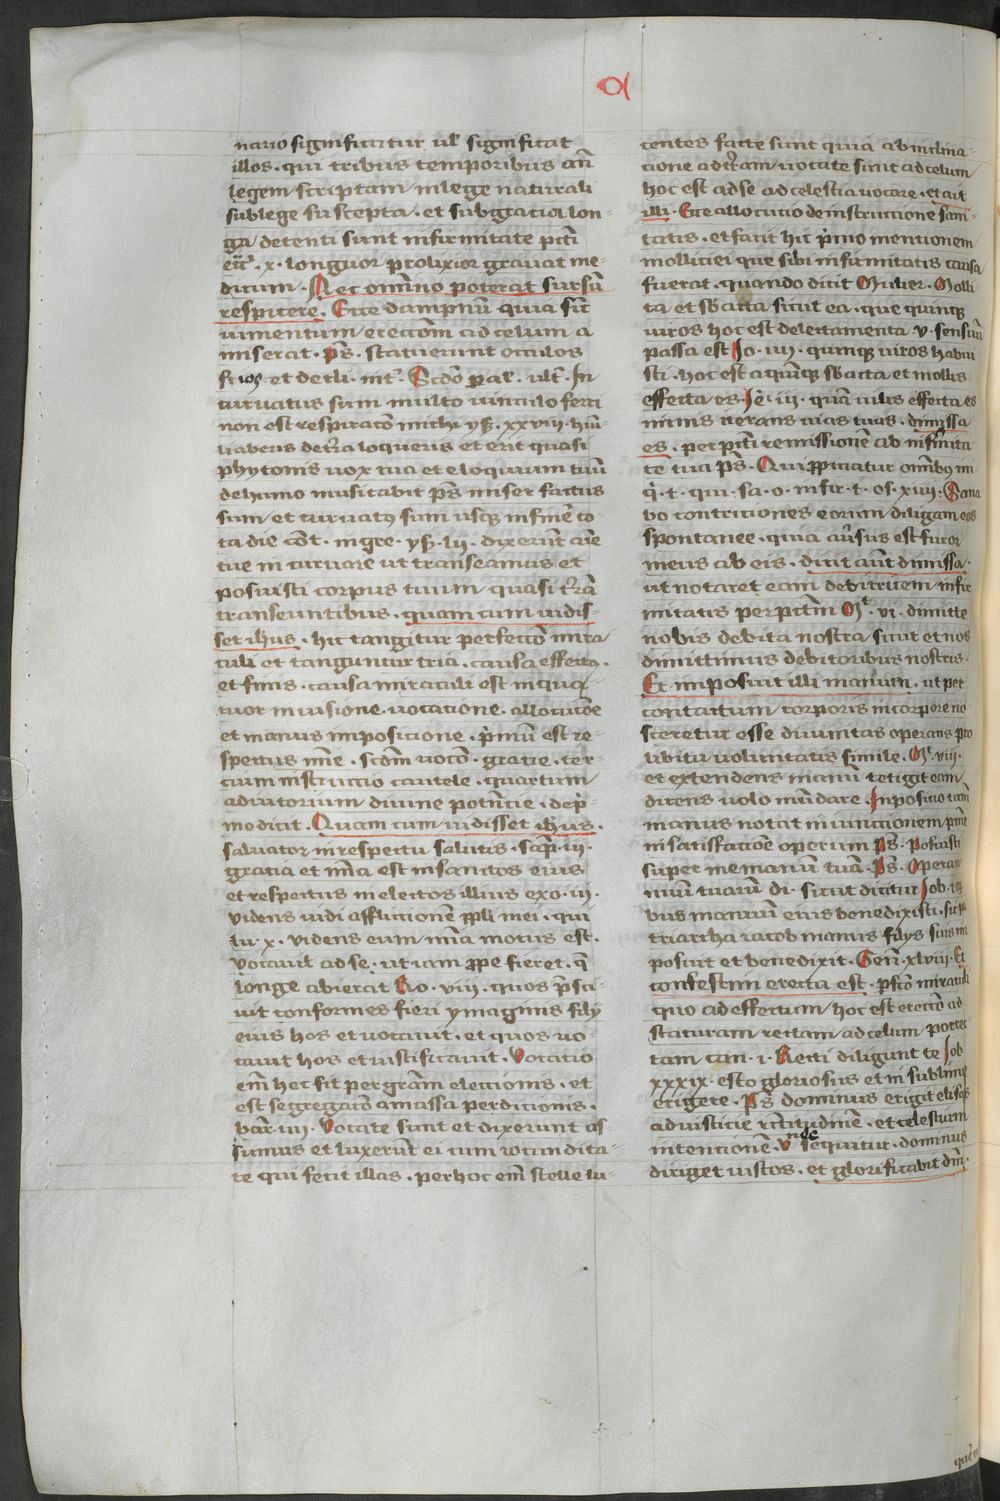 nario significatur ul' significat
illos · qui tribus temporibus an̄
legem scriptam in lege naturali
sub lege suscepta · et sub gratia lon-
ga detenti sunt infirmitate pcti
· x · longuor prolixior gravat me-
dicum · Nec omīno poterat sursū
respicere · Ecce dampnū quia
iumentum ad celum a
miserat · ps̄ · statuerunt oculos
et decli · Scd̄o par · ult̄ · In
curvatus sum multo vinculo ferri
non est michi ys̄ · xxviii · hūi
liaberis de t̄ra loqueris et erit quasi
phytonis vox tua et eloquium tuū
de humo musitabit ps̄ miser factus
sum et curvatꝰ sum usqꝫ in finē to-
ta die · ys̄ · li · dixerūt aīe
tue incurvare ut transeamus et
posuisti corpus tuum quasi t̄rā
transeuntibus · quam cum vidis-
set ihus · hic tangitur perfectō mira
culi et tanguntur tria · causa effectꝰ ·
et finis · causa miraculi est in qua-
tuor in visione · vocatione · allocucōe
et manus impositione · p̄mum est re-
spectus mīe · scd̄m vocō · gratie · ter-
cium instructio cautele · quartum
adiutorium divine potn̄cie · de p̄-
mo dicit · Quam cum vidisset ihus ·
salvator in respectu salutis · sap̄ · iii ·
gratia et mīa est in sanctos eius
et respectus in electos illius exo · iii ·
videns vidi afflictionē ppli mei · qui
lu · x · videns eum mīa motus est ·
vocavit ad se · ut iam ꝓpe fieret · q̄
longe abierat Ro · viii · quos p̄sci-
vit conformes fieri ymaginis filij
eius hos et vocavit · et quos vo-
cavit hos et iustificavit · Vocatio
em̄ hec fit per grām electionis · et
est segregacō a massa perditionis ·
bar · iii · Vocate sunt et dixerunt as
sumus et luxerūt ei cum iocundita-
te qui fecit illas · per hoc em̄ stelle lu-
centes facte sunt quia ab inclina-
cione ad t̄ram vocate sunt ad celum
hoc est ad se ad celestia vocare · et ait
illi · Ecce allocutio de instructione san-
tatis · et facit hic p̄mo mentionem
mollitiei que sibi infirmitatis causa
fuerat · quando dicit Mulier · Molli-
ta et sb̄acta sicut ea · que quinqꝫ
viros hoc est delectamenta v · sensuū
passa est Jo · iiii · quinqꝫ viros habui
sti · hoc est a quinqꝫ sb̄acta et mollis
effecta es · Je · iii · quā vilis effecta es
nimis iterans vias tuas · dimissa
es · per pcti remissionē ab infirmita
te tua ps̄ · Qui ꝓpiciatur omībꝰ ini
q̄ · t · qui · sa · o · infir · t · os · xiiii · Sana
bo contriciones eorum diligam eos
spontanee · quia av̄sus est furor
meus ab eis · dicit aūt dimissa ·
ut notaret eam debitricem infir
mitatis per pctm̄ Mt · vi · dimitte
nobis debita nostra sicut et nos
dimittimus debitoribus nostris ·
Et imposuit illi manum · ut per
contactum corporis in corpore no
sceretur esse divinitas operans pro
libitu voluntatis simile · Mt · viii ·
et extendens manū tetigit eam
dicens volo mūdare · Inposicio tam̄
manus notat iniunctionem pnīe
in satisfactiōe operum ps̄ · posuisti
super me manū tuā · Ps̄ · Opera
nuū tuarū di · sicut dicitur Job · i
bus manuū eius benedixisti · sic pa
triarcha iacob manus filijs suis im
posuit et benedixit · Gen̄ · xlviii · Et
confestim erecta est · pfectō miraculi
quo ad effectum hoc est erectō ad
staturam rectam ad celum porrec
tam can · i · Recti diligunt te Job
xxxix · esto gloriosus et in sublime
erigere · ps̄ dominus erigit elisos
ad iusticie rectitudinē · et celestium
intencionē · Unde sequitur · dominus
diriget iustos · et glorificabit dm̄ ·